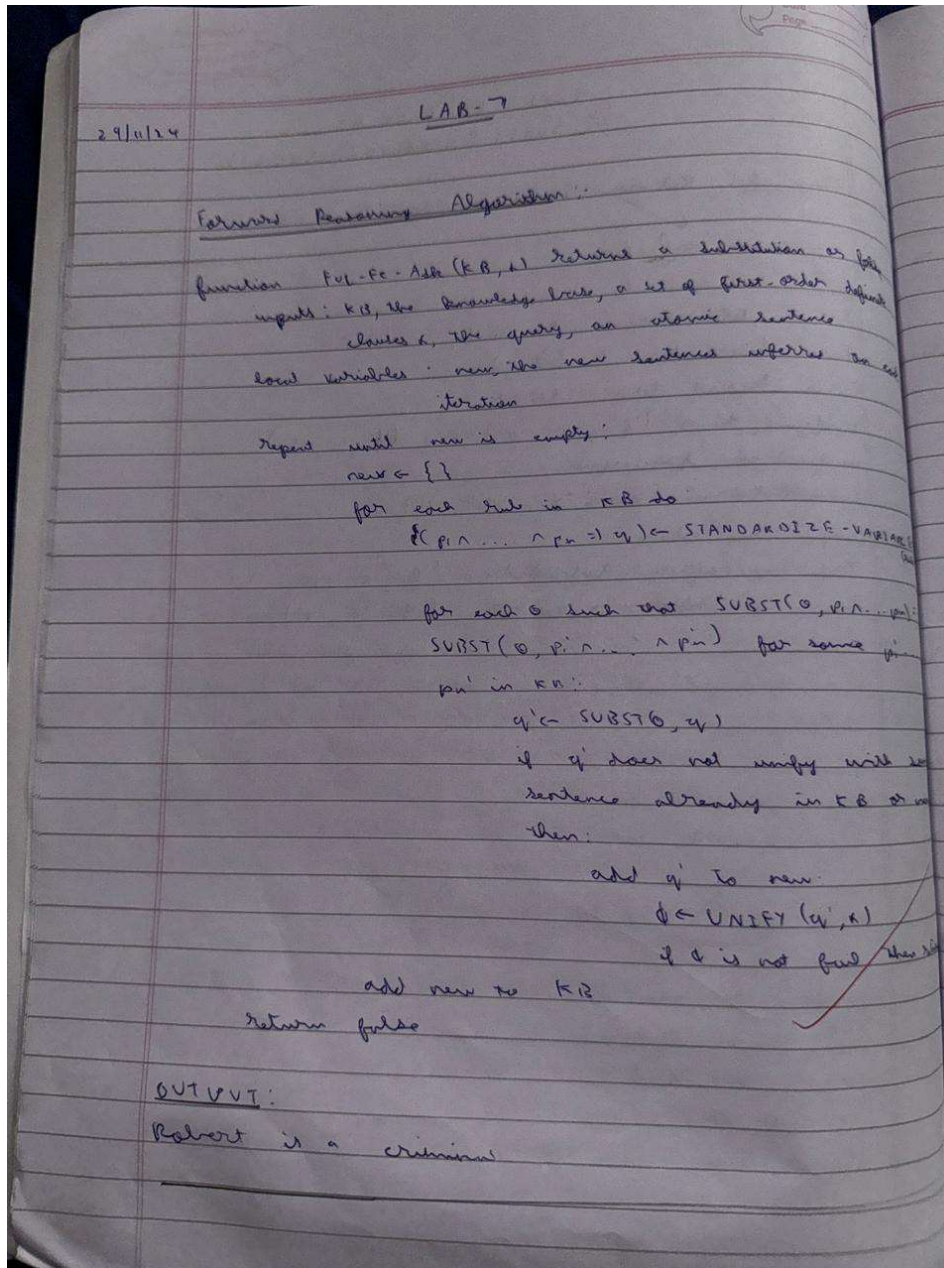 Page
LAB-7
29/11/24
Forward Reasoning Algorithm:
function FOL-FC-Ask (KB, α) returns a substitution or false
inputs: KB, the knowledge base, a set of first-order definite
clauses α, the query, an atomic sentence
local variables: new, the new sentences inferred on each
iteration
repeat until new is empty:
new ← { }
for each rule in KB do
(p1 ∧ ... ∧ pn => q) ← STANDARDIZE-VARIABLES
for each θ such that SUBST(θ, p1 ∧ ... pn) =
SUBST(θ, p1' ∧ ... ∧ pn') for some p1'
pn' in KB:
q' ← SUBST(θ, q)
if q' does not unify with
sentence already in KB or
then:
add q' to new
ɸ ← UNIFY (q', α)
if ɸ is not fail then
add new to KB
return false
OUTPUT:
Robert is a criminal